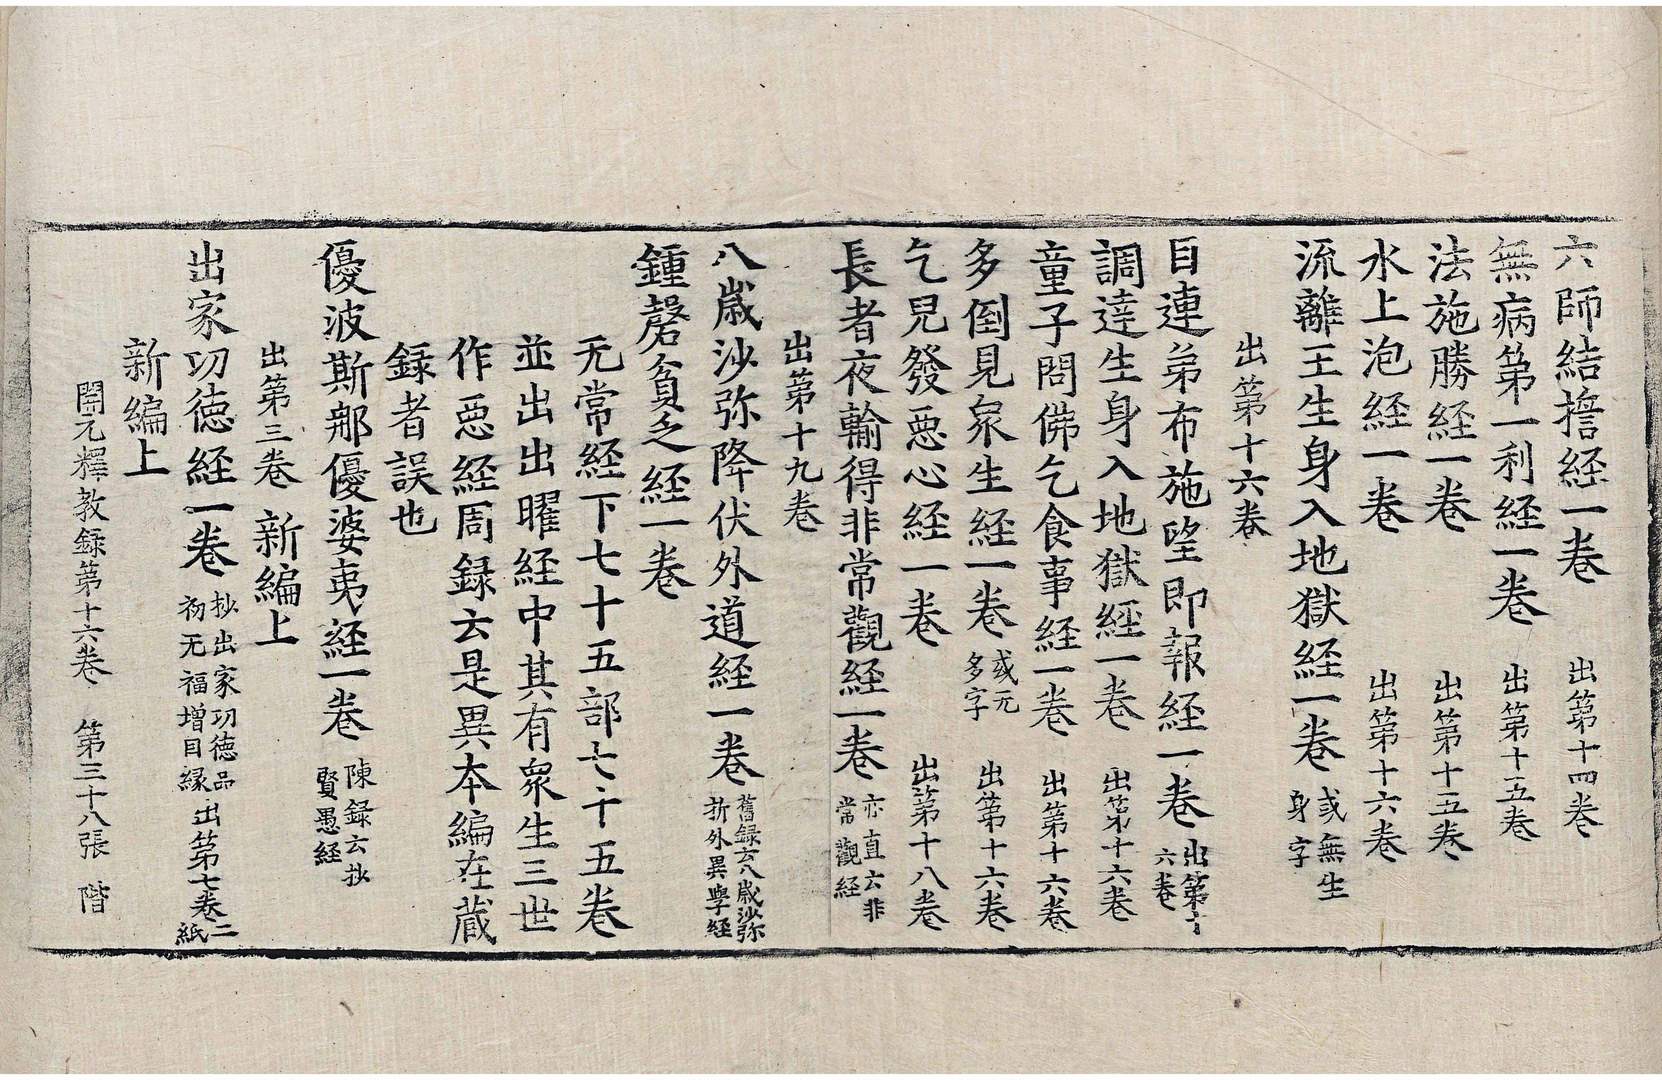 六師結誓経一卷 出第十四卷
無病第一利経一卷 出第十五卷
法施勝経一卷 出第十五卷
水上泡経一卷 出第十六卷
流離王生身入地獄経一卷 或無生身字
出第十六卷
目連弟布施望即報経一卷 出第十六卷
調達生身入地獄経一卷 出第十六卷
童子問佛乞食事経一卷 出第十六卷
多倒見衆生経一卷 或无多字 出第十六卷
乞兒發惡心経一卷 出第十八卷
長者夜輸得非常觀経一卷 亦直云非常觀経
出第十九卷
八歳沙弥降伏外道経一卷 舊録云八歳沙弥折外異學経
鍾磬貧乏経一卷
无常経下七十五部七十五卷
並出出曜経中其有衆生三世
作惡経周録云是異本編在蔵
録者誤也
優波斯那優婆夷経一卷 陳録云抄賢愚経
出第三卷 新編上
出家功徳経一卷 抄出家功徳品初无福増因縁 出第七卷二紙
新編上
開元釋教録第十六卷 第三十八張 階